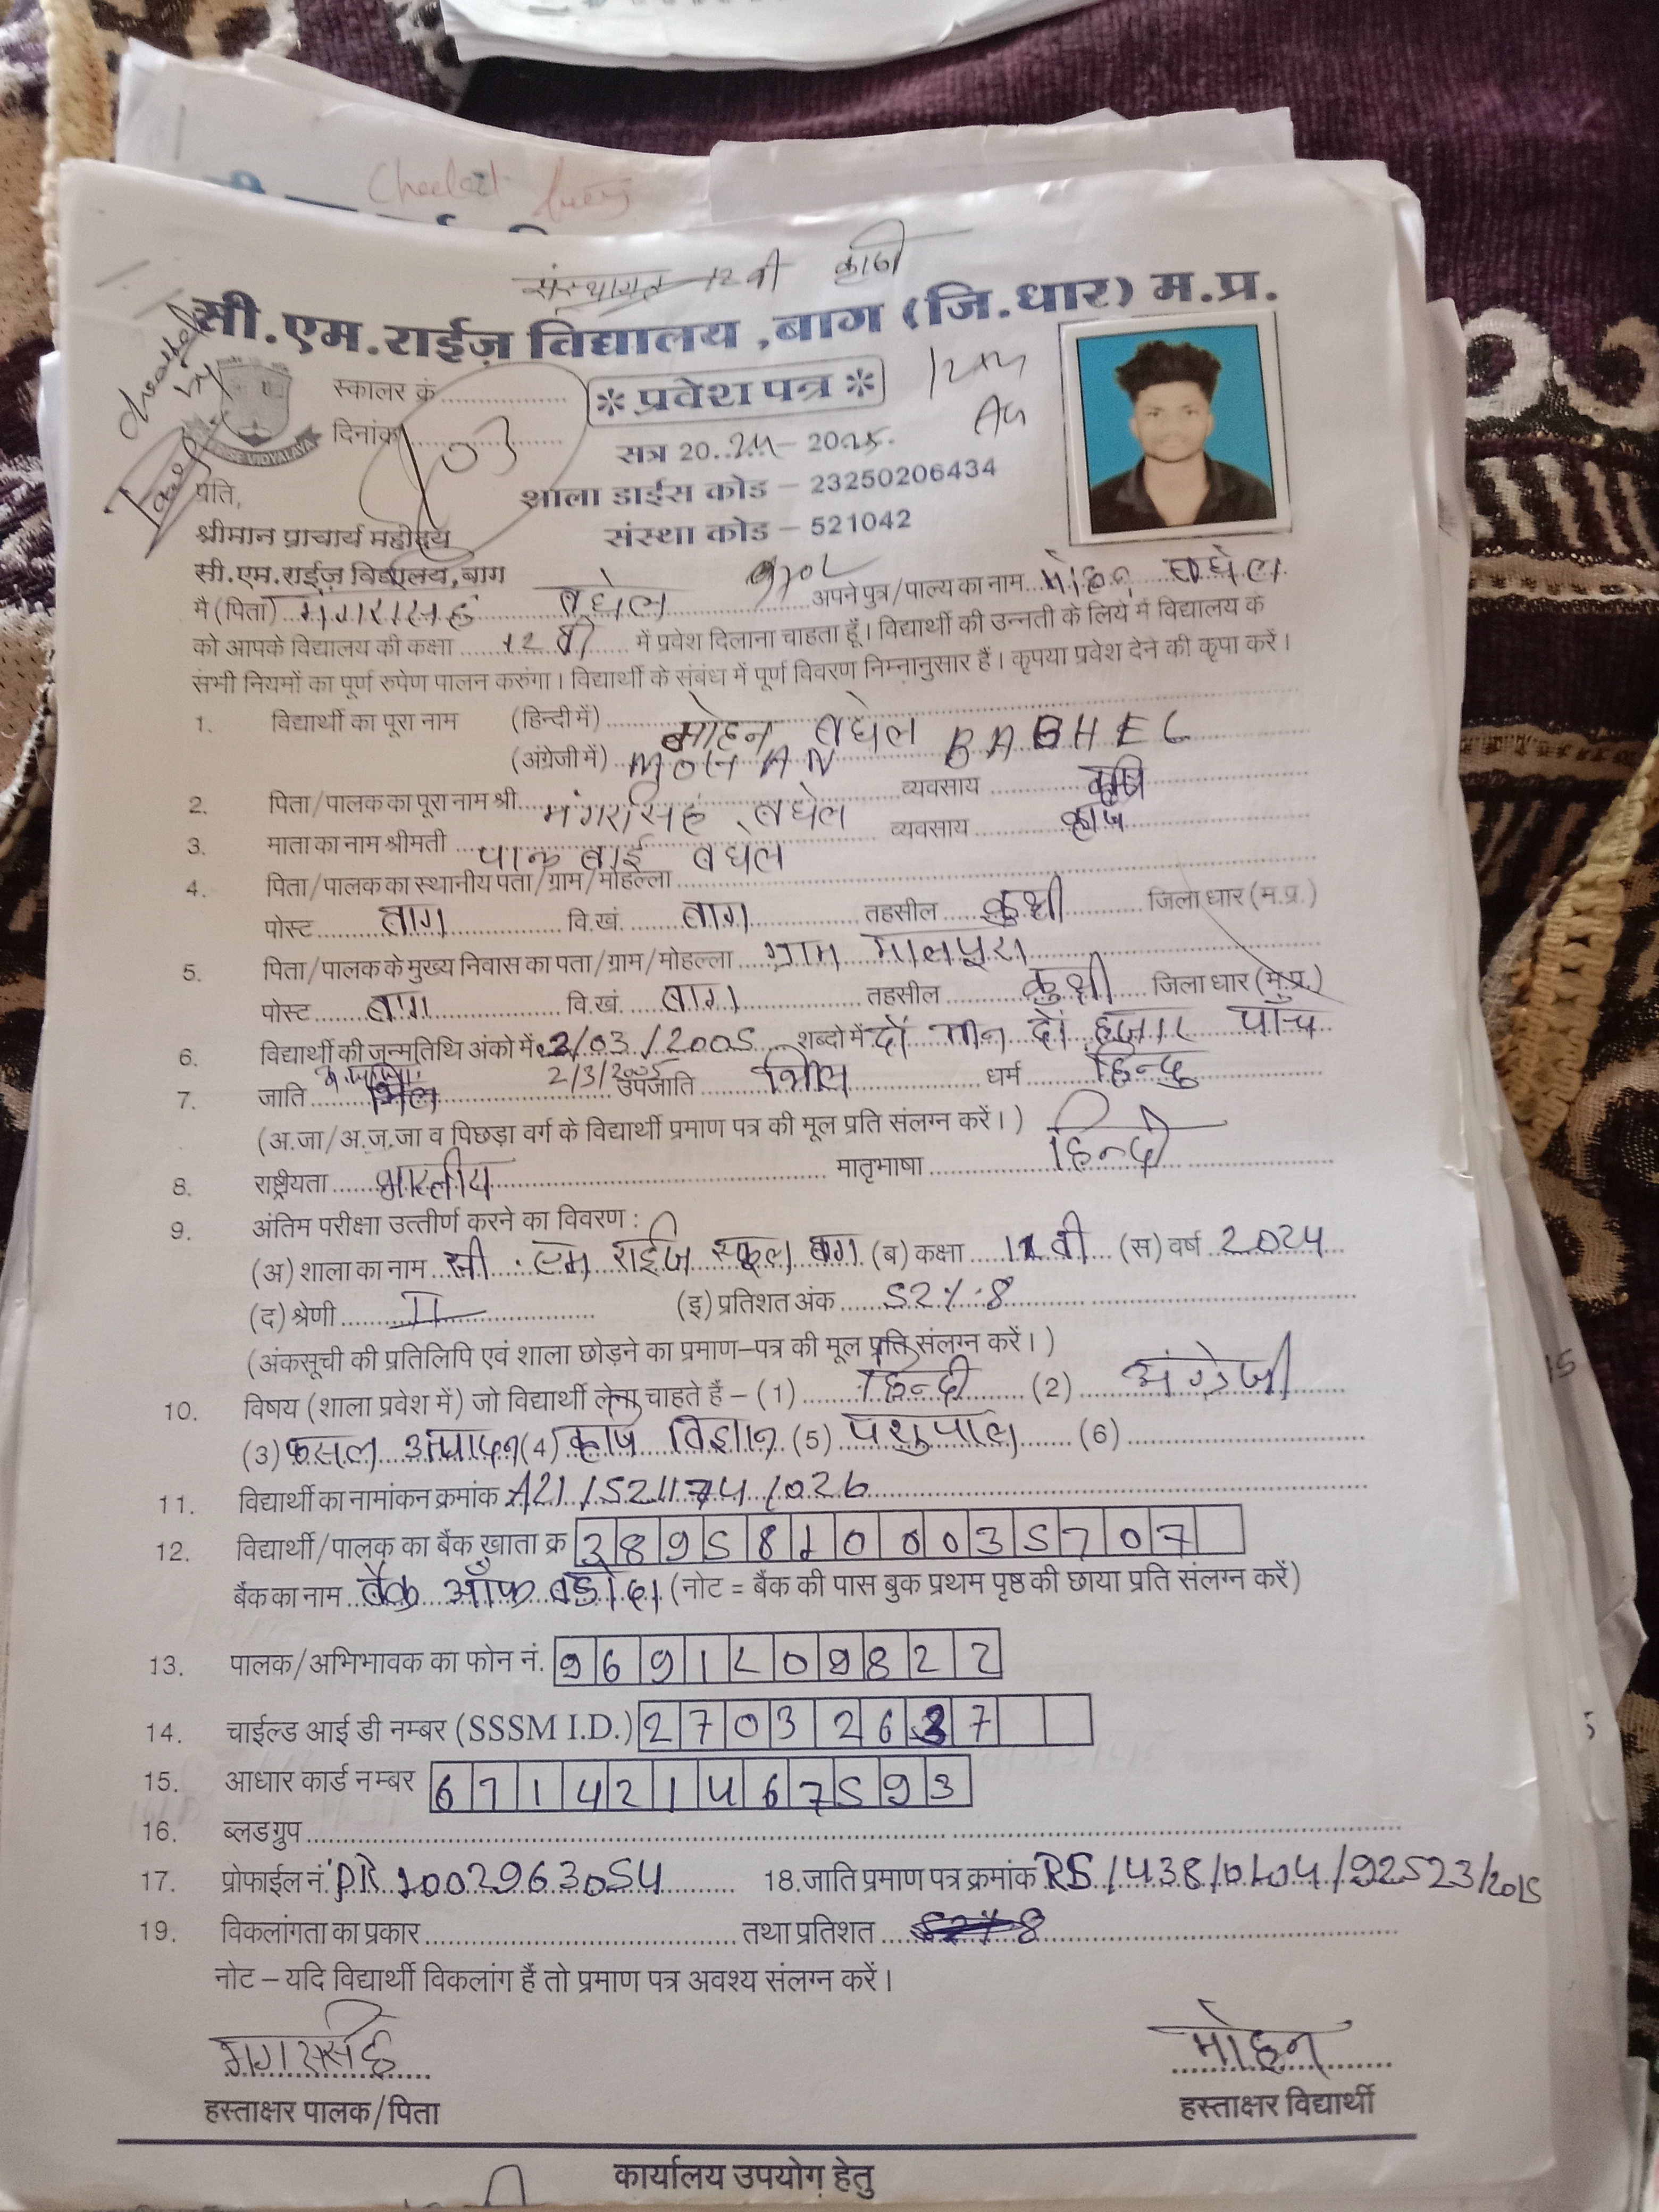 संस्थागत 12 वी
सी.एम.राईज़ विद्यालय ,बाग (जि.धार) म.प्र.
स्कालर क्रं
* प्रवेश पत्र *
दिनांक
03
सत्र 20 24 – 2025
RISE VIDYALAYA
शाला डाईस कोड – 23250206434
प्रति,
संस्था कोड – 521042
श्रीमान प्राचार्य महोदय
सी.एम.राईज़ विद्यालय,बाग
मै (पिता) मगरसिह बघेल अपने पुत्र/पाल्य का नाम मोहन बघेल
को आपके विद्यालय की कक्षा 12 वी में प्रवेश दिलाना चाहता हूँ। विद्यार्थी की उन्नती के लिये मैं विद्यालय के
सभी नियमों का पूर्ण रुपेण पालन करुंगा। विद्यार्थी के संबंध में पूर्ण विवरण निम्नानुसार हैं। कृपया प्रवेश देने की कृपा करें।
1. विद्यार्थी का पूरा नाम (हिन्दी में) मोहन बघेल
(अंग्रेजी में) MOHAN BAGHEL
2. पिता/पालक का पूरा नाम श्री मंगरसिह बघेल व्यवसाय कृषि
3. माता का नाम श्रीमती बाई बघेल व्यवसाय
4. पिता/पालक का स्थानीय पता/ग्राम/मोहल्ला
पोस्ट बाग वि.खं. बाग तहसील कुक्षी जिला धार (म.प्र.)
5. पिता/पालक के मुख्य निवास का पता/ग्राम/मोहल्ला ग्राम मालपुरा
पोस्ट बाग वि.खं. बाग तहसील कुक्षी जिला धार (म.प्र.)
6. विद्यार्थी की जन्मतिथि अंको में 2/03/2005 शब्दो में दो मान दो हजार पाँच
7. जाति भिल 2/3/2005 उपजाति भिल धर्म हिन्दु
(अ.जा/अ.ज.जा व पिछड़ा वर्ग के विद्यार्थी प्रमाण पत्र की मूल प्रति संलग्न करें।)
8. राष्ट्रीयता भारतीय मातृभाषा हिन्दी
9. अंतिम परीक्षा उत्तीर्ण करने का विवरण :
(अ) शाला का नाम सी. एम राईज स्कूल बाग (ब) कक्षा 11 वी (स) वर्ष 2024
(द) श्रेणी II (इ) प्रतिशत अंक 52%.8
(अंकसूची की प्रतिलिपि एवं शाला छोड़ने का प्रमाण–पत्र की मूल प्रति संलग्न करें।)
10. विषय (शाला प्रवेश में) जो विद्यार्थी लेना चाहते हैं – (1) हिन्दी (2) अंग्रेजी
(3) फसल उत्पादन (4) विज्ञान (5) पशुपाल (6)
11. विद्यार्थी का नामांकन क्रमांक A21/521174/026
12. विद्यार्थी/पालक का बैंक खाता क्र 38958100035707
बैंक का नाम बैंक ऑफ बडोदा (नोट = बैंक की पास बुक प्रथम पृष्ठ की छाया प्रति संलग्न करें)
13. पालक/अभिभावक का फोन नं. 9691209822
14. चाईल्ड आई डी नम्बर (SSSM I.D.) 27032637
15. आधार कार्ड नम्बर 671421467593
16. ब्लडग्रुप
17. प्रोफाईल नं. PR1002963054 18. जाति प्रमाण पत्र क्रमांक RS/438/0104/92523/2015
19. विकलांगता का प्रकार तथा प्रतिशत
नोट – यदि विद्यार्थी विकलांग हैं तो प्रमाण पत्र अवश्य संलग्न करें।
मगरसिह मोहन
हस्ताक्षर पालक/पिता हस्ताक्षर विद्यार्थी
कार्यालय उपयोग हेतु